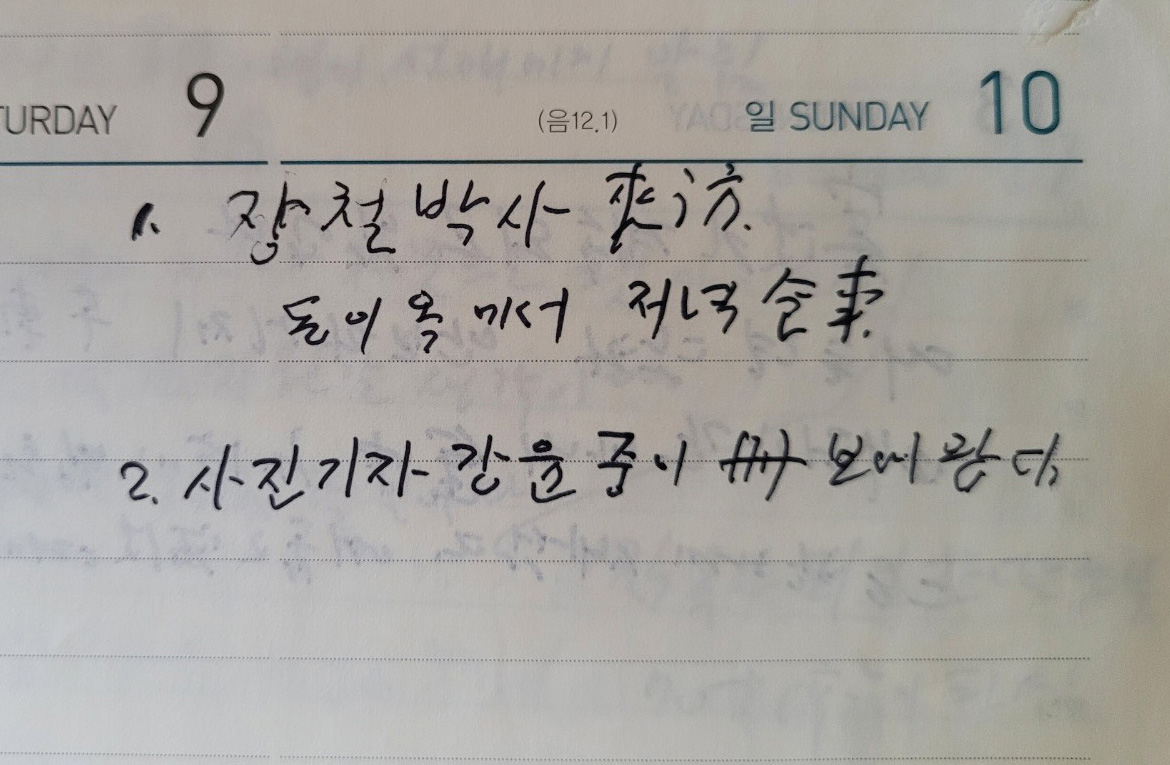 TURDAY 9 (음12.1) 일 SUNDAY 10
1. 장철박사 来訪.
돈이옥에서 저녁 食事.
2. 사진기자 강윤중이 冊 보내왔다.